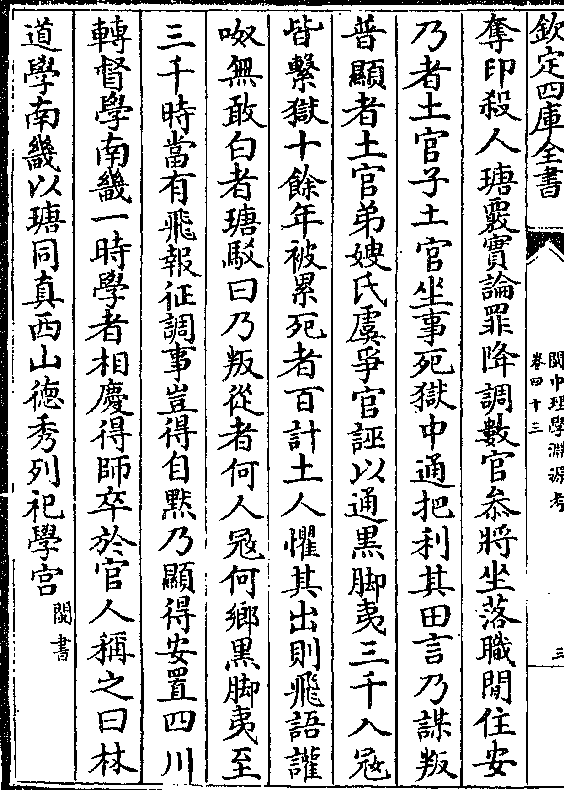 欽定四庫全書
閩中理學淵源考
卷四十三
三
奪印殺人瑭覈實論罪降調數官叅將坐落職閒住安
乃者土官子土官坐事死獄中通把利其田言乃謀叛
普顯者土官弟嫂氏虞爭官誣以通黒脚夷三千入冦
皆繫獄十餘年被累死者百計土人懼其出則飛語讙
呶無敢白者瑭駁曰乃叛從者何人冦何鄉黒脚夷至
三千時當有飛報征調事豈得自黙乃顯得安置四川
轉督學南畿一時學者相慶得師卒於官人稱之曰林
道學南畿以瑭同真西山徳秀列祀學宫
閩書